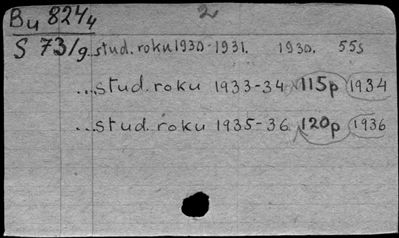 Bu 8244 2
S 73/g ...stud. roku 1930-1931. 1930. 55s
...stud. roku 1933-34 115p 1934
...stud. roku 1935-36 120p 1936